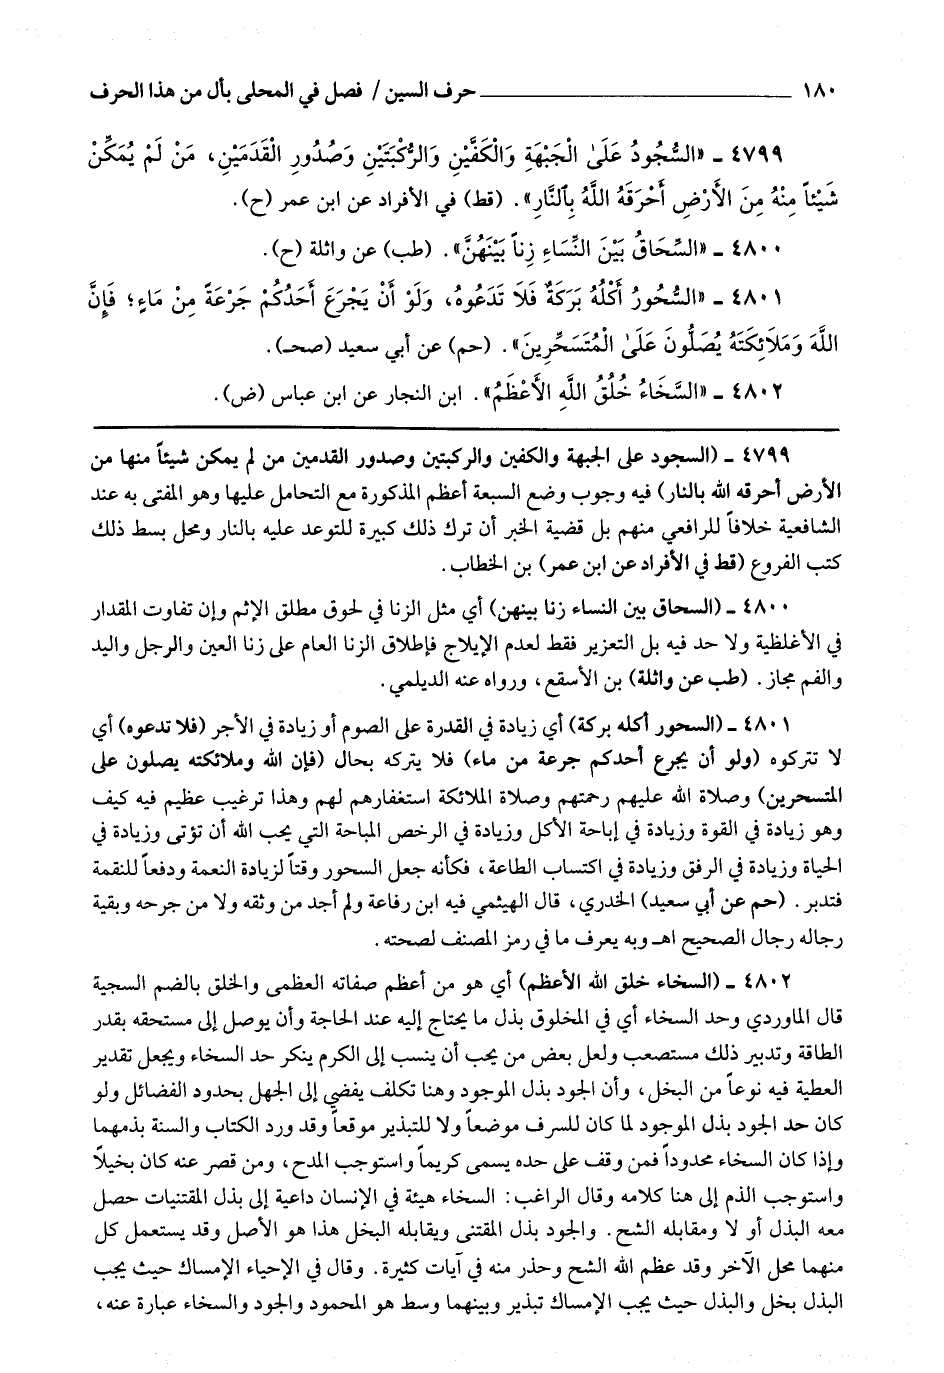 ١٨٠ ــــــــــــــــــــ حرف السين / فصل في المحلى بأل من هذا الحرف
٤٧٩٩ ـ «السُّجُودُ عَلَىٰ الْجَبْهَةِ وَالْكَفَّيْنِ وَالرُّكْبَتَيْنِ وَصُدُورِ القَدَمَيْنِ، مَنْ لَمْ يُمَكِّنْ
شَيْئاً مِنْهُ مِنَ الأَرْضِ أَحْرَقَهُ اللَّهُ بِالنَّارِ». (قط) في الأفراد عن ابن عمر (ح).
٤٨٠٠ ـ «السِّحَاقُ بَيْنَ النِّسَاءِ زِناً بَيْنَهُنَّ». (طب) عن واثلة (ح).
٤٨٠١ ـ «السُّحُورُ أَكْلُهُ بَرَكَةٌ فَلَا تَدَعُوهُ، وَلَوْ أَنْ يَجْرَعَ أَحَدُكُمْ جَرْعَةً مِنْ مَاءٍ؛ فَإِنَّ
اللَّهَ وَمَلَائِكَتَهُ يُصَلُّونَ عَلَىٰ الْمُتَسَحِّرِينَ». (حم) عن أبي سعيد (صحـ).
٤٨٠٢ ـ «السَّخَاءُ خُلُقُ اللَّهِ الأَعْظَمُ». ابن النجار عن ابن عباس (ض).
٤٧٩٩ ـ (السجود على الجبهة والكفين والركبتين وصدور القدمين من لم يمكن شيئاً منها من
الأرض أحرقه الله بالنار) فيه وجوب وضع السبعة أعظم المذكورة مع التحامل عليها وهو المفتى به عند
الشافعية خلافاً للرافعي منهم بل قضية الخبر أن ترك ذلك كبيرة للتوعد عليه بالنار ومحل بسط ذلك
كتب الفروع (قط في الأفراد عن ابن عمر) بن الخطاب.
٤٨٠٠ ـ (السحاق بين النساء زنا بينهن) أي مثل الزنا في لحوق مطلق الإثم وإن تفاوت المقدار
في الأغلظية ولا حد فيه بل التعزير فقط لعدم الإيلاج فإطلاق الزنا العام على زنا العين والرجل واليد
والفم مجاز. (طب عن واثلة) بن الأسقع، ورواه عنه الديلمي.
٤٨٠١ ـ (السحور أكله بركة) أي زيادة في القدرة على الصوم أو زيادة في الأجر (فلا تدعوه) أي
لا تتركوه (ولو أن يجرع أحدكم جرعة من ماء) فلا يتركه بحال (فإن الله وملائكته يصلون على
المتسحرين) وصلاة الله عليهم رحمتهم وصلاة الملائكة استغفارهم لهم وهذا ترغيب عظيم فيه كيف
وهو زيادة في القوة وزيادة في إباحة الأكل وزيادة في الرخص المباحة التي يحب الله أن تؤتى وزيادة في
الحياة وزيادة في الرفق وزيادة في اكتساب الطاعة، فكأنه جعل السحور وقتاً لزيادة النعمة ودفعاً للنقمة
فتدبر. (حم عن أبي سعيد) الخدري، قال الهيثمي فيه ابن رفاعة ولم أجد من وثقه ولا من جرحه وبقية
رجاله رجال الصحيح اهـ وبه يعرف ما في رمز المصنف لصحته.
٤٨٠٢ ـ (السخاء خلق الله الأعظم) أي هو من أعظم صفاته العظمى والخلق بالضم السجية
قال الماوردي وحد السخاء أي في المخلوق بذل ما يحتاج إليه عند الحاجة وأن يوصل إلى مستحقه بقدر
الطاقة وتدبير ذلك مستصعب ولعل بعض من يحب أن ينسب إلى الكرم ينكر حد السخاء ويجعل تقدير
العطية فيه نوعاً من البخل، وأن الجود بذل الموجود وهنا تكلف يفضي إلى الجهل بحدود الفضائل ولو
كان حد الجود بذل الموجود لما كان للسرف موضعاً ولا للتبذير موقعاً وقد ورد الكتاب والسنة بذمهما
وإذا كان السخاء محدوداً فمن وقف على حده يسمى كريماً واستوجب المدح، ومن قصر عنه كان بخيلاً
واستوجب الذم إلى هنا كلامه وقال الراغب: السخاء هيئة في الإنسان داعية إلى بذل المقتنيات حصل
معه البذل أو لا ومقابله الشح. والجود بذل المقتنى ويقابله البخل هذا هو الأصل وقد يستعمل كل
منهما محل الآخر وقد عظم الله الشح وحذر منه في آيات كثيرة. وقال في الإحياء الإمساك حيث يجب
البذل بخل والبذل حيث يجب الإمساك تبذير وبينهما وسط هو المحمود والجود والسخاء عبارة عنه،